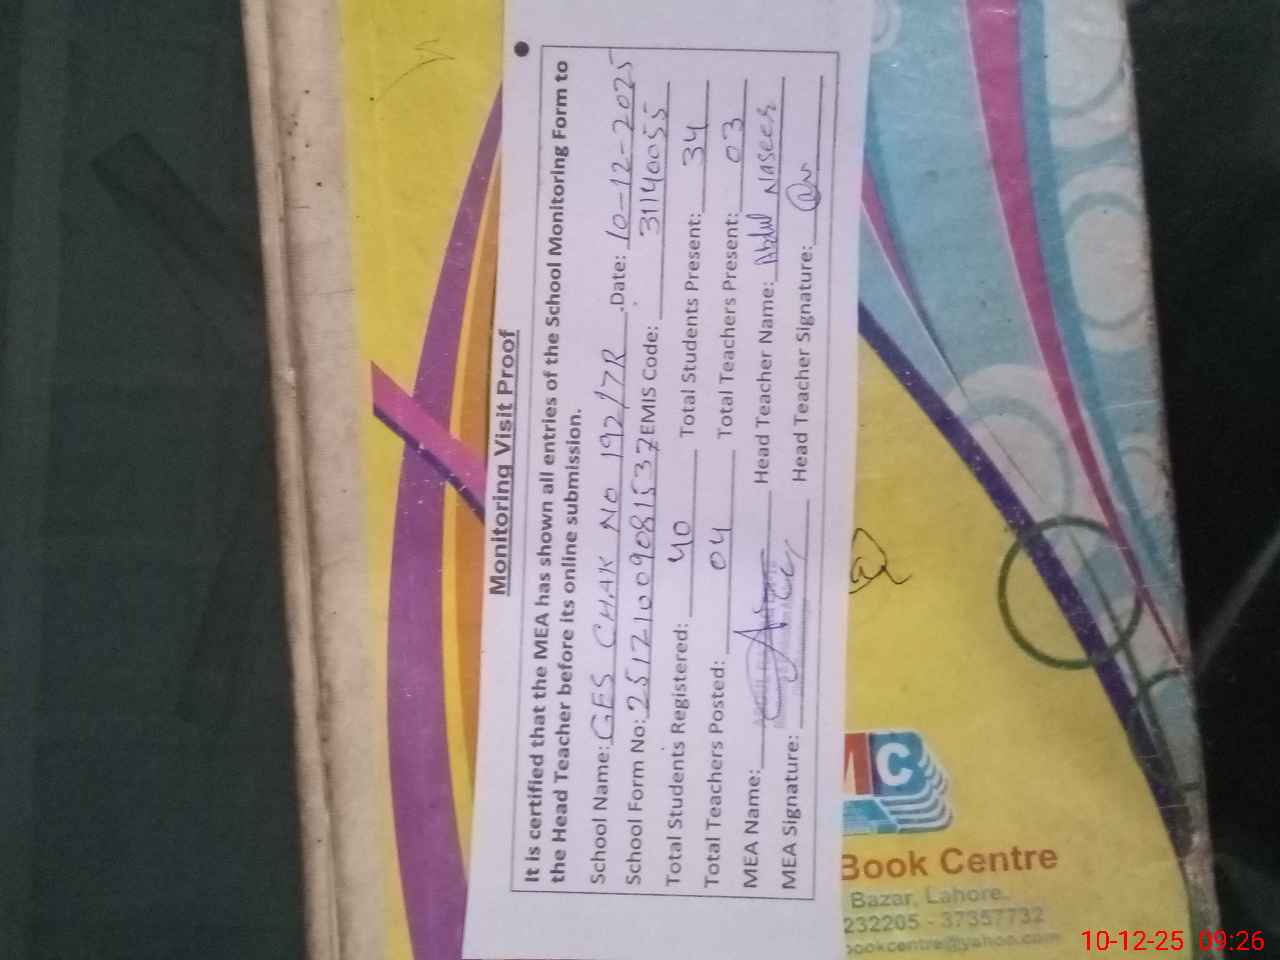 Monitoring Visit Proof
It is certified that the MEA has shown all entries of the School Monitoring Form to
the Head Teacher before its online submission.
School Name: GES CHAK NO 192/7R .Date: 10-12-2025
School Form No: 25121009081537 EMIS Code: 31140055
Total Students Registered: 40 Total Students Present: 34
Total Teachers Posted: 04 Total Teachers Present: 03
MEA Name: Head Teacher Name: Abdul Naseer
MEA Signature: Head Teacher Signature:
MC
Book Centre
Bazar, Lahore.
232205 - 37357732
bookcentre@yahoo.com
10-12-25 09:26